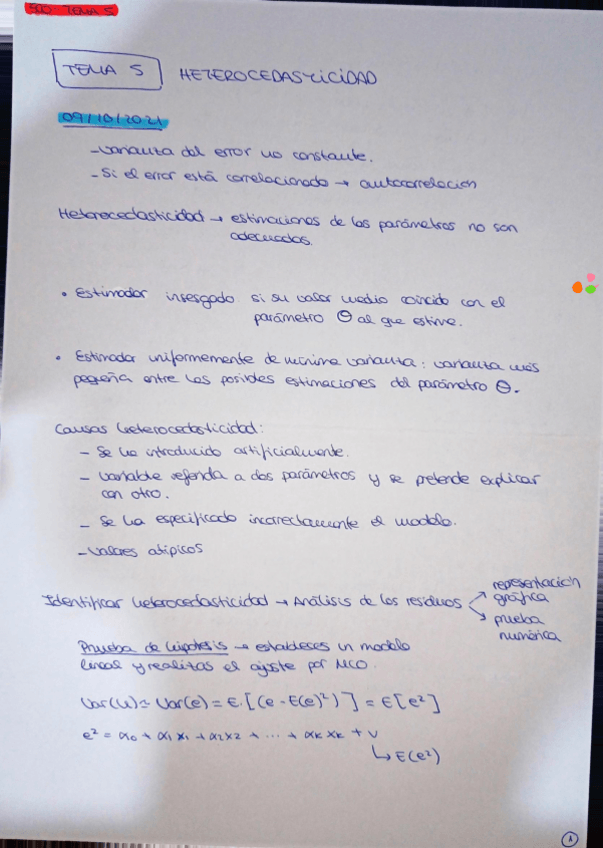 TEMA 5
TEMA 5 HETEROCEDASTICIDAD
09/10/2021
- Varianza del error no constante.
- Si el error está correlacionado → autocorrelación
Heterocedasticidad → estimaciones de los parámetros no son
adecuados.
• Estimador insesgado si su valor medio coincide con el
parámetro θ al que estime.
• Estimador uniformemente de mínima varianza: varianza más
pequeña entre las posibles estimaciones del parámetro θ.
Causas heterocedasticidad:
- Se ha introducido artificialmente.
- Variable referida a dos parámetros y se pretende explicar
con otro.
- Se ha especificado incorrectamente el modelo.
- Valores atípicos
Identificar heterocedasticidad → Análisis de los residuos
representación
gráfica
prueba
numérica
Prueba de hipótesis → estableces un modelo
lineal y realizas el ajuste por MCO.
Var(u) ≃ Var(e) = E[(e - E(e)²)] = E[e²]
e² = α0 + α1x1 + α2x2 + ... + αkxk + v
↳ E(e²)
1